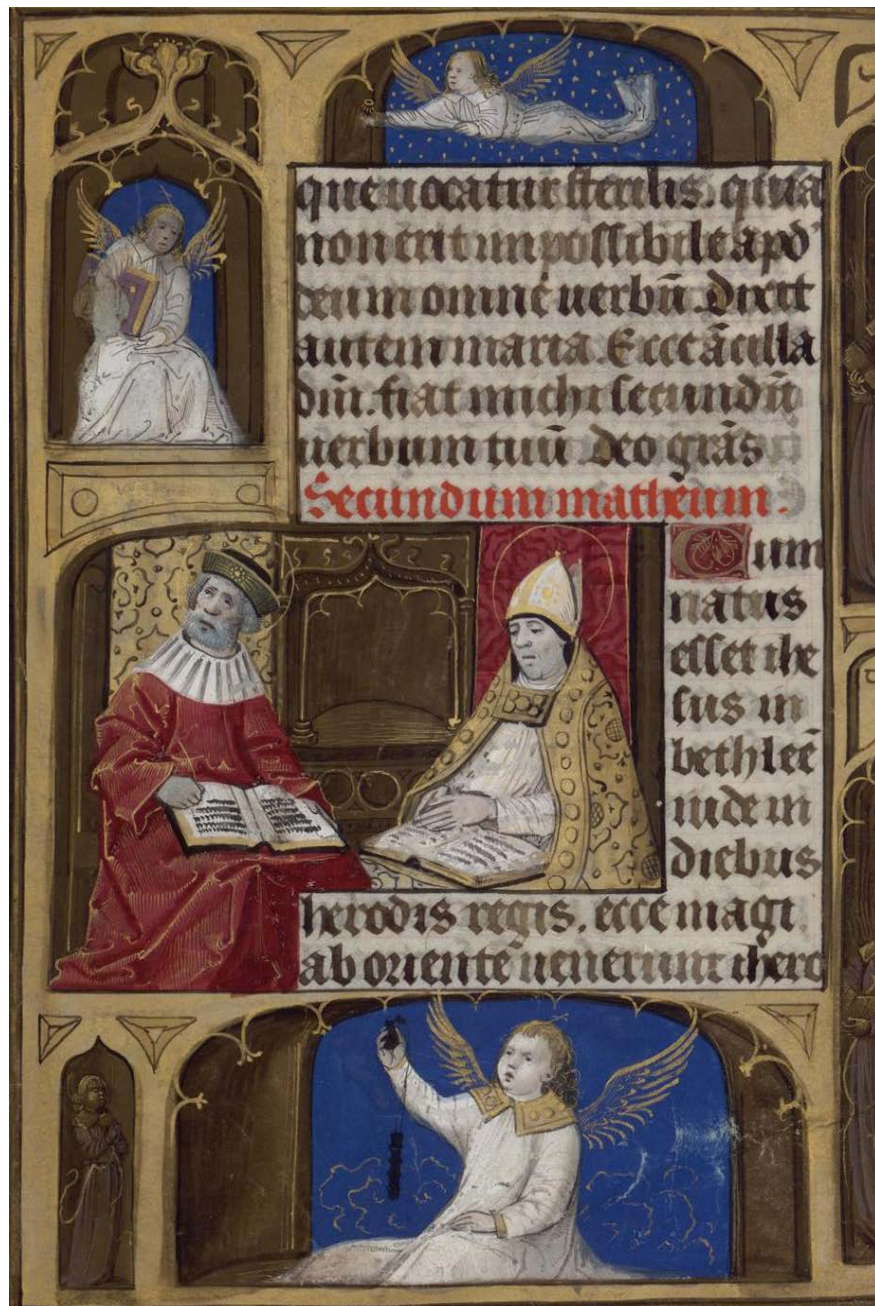 que uocatur sterilis. quia
non erit impossibile apd'
deum omne uerbū. Dixit
autem maria. Ecce ācilla
dn̄i. fiat michi secundū
uerbum tuū deo grās
Secundum matheum.
Cum
natus
esset ihe
sus in
bethleē
iude in
diebus
herodis regis. ecce magi
ab oriente uenerunt ihero